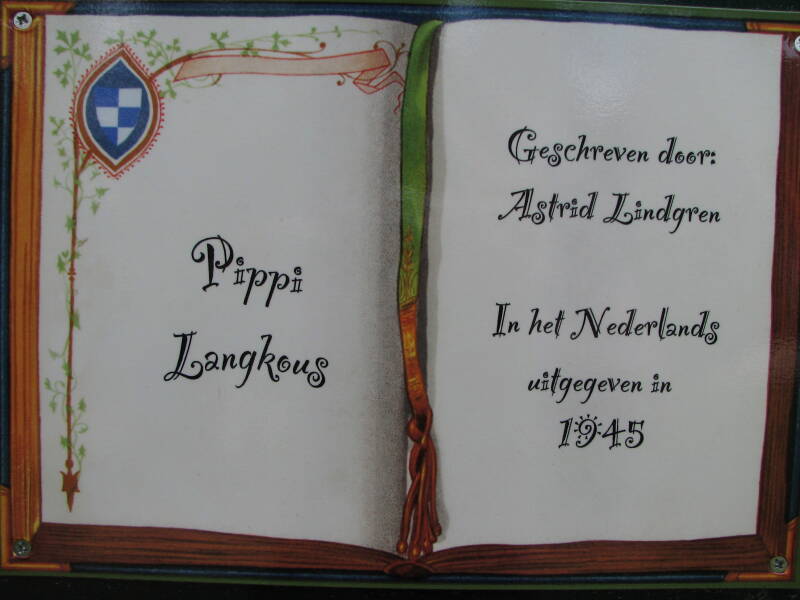 Pippi
Langkous
Geschreven door:
Astrid Lindgren
In het Nederlands
uitgegeven in
1945